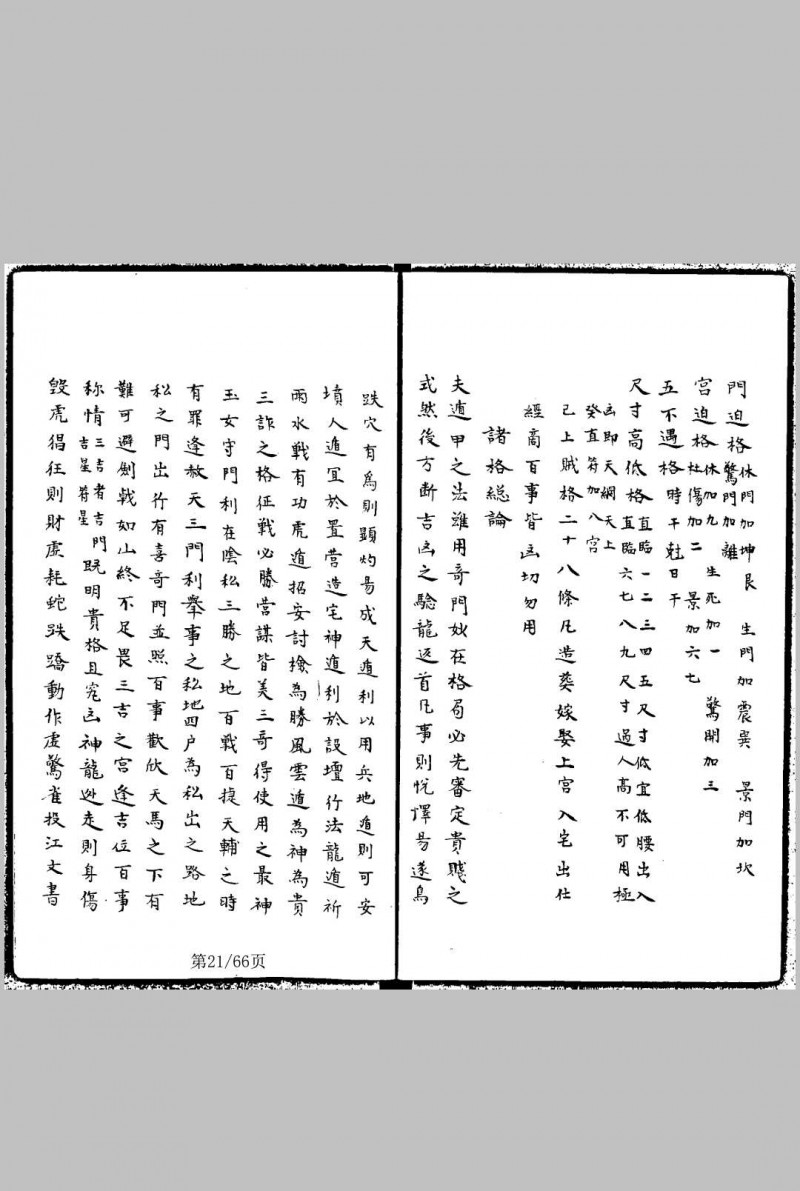 門迫格 休門加坤艮 生門加震巽 景門加坎
驚門加離
宮迫格 休加九 生死加一 驚開加三
杜傷加二 景加六七
五不遇格 時干尅日干
尺寸高低格 直臨一二三四五尺寸低宜低腰出入
直臨六七八九尺寸過人高不可用極
凶即天網天上
癸直符加八宮
已上賊格二十八條凡造葬嫁娶上官入宅出仕
經商百事皆凶切勿用
諸格総論
夫遁甲之法雖用奇門妙在格局必先審定貴賤之
式然後方断吉凶之驗龍返首凡事則悦懌易遂鳥
跌穴有爲則顕灼易成天遁利以用兵地遁則可安
墳人遁宜於置营造宅神遁利於設壇行法龍遁祈
雨水戰有功虎遁招安討檢為勝風雲遁為神為貴
三詐之格征戰必勝营謀皆美三奇得使用之最神
玉女守門利在陰私三勝之地百戰百捷天輔之時
有罪逢赦天三門利舉事之私地四户為私出之路地
私之門出行有喜奇門並照百事歡欣天馬之下有
難可避劍戟如山終不足畏三吉之宫逢吉位百事
称情 三吉者吉門吉星符星 既明貴格且宄凶神龍逃走則身傷
毀虎猖狂則財虛耗蛇跌蹻動作虛驚雀投江文書
第21/66页